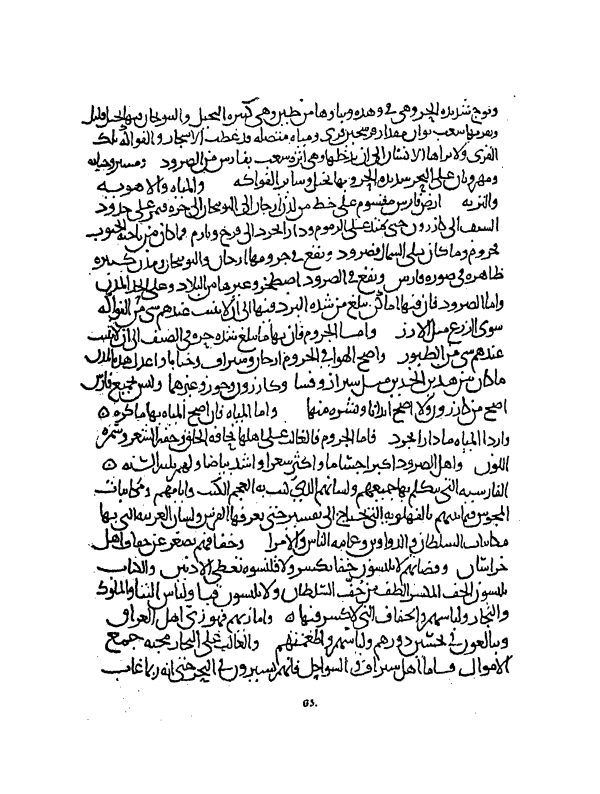 وتوج شديدة الحر وهي في وهده وبناوها من طين وهي كثيرة النخيل
وبقربها شعب بوان مقدار فرسخين قرى ومياه متصلة قد غطت الاشجار والفواكه تلك
القرى ولا يراها الانسان الى ان يدخلها وهي انزه شعب بفارس من الصرود
ومهروبان على البحر شديدة الحر وبها نخيل وساير الفواكه والمياه والاهويه
والتربه ارض فارس مقسوم على خط من لدن ارجان الى النوبنجان الى فيمر على حدود
السيف الى كازرون حتى يمتد على الرموم ودارابجرد الى فرج وتارم فما كان من ناحية الجنوب
فجروم وما كان يلي الشمال فصرود ويقع في جرومها ارجان والنوبنجان ومدن كثيره
ظاهره في صورة فارس ويقع في الصرود اصطخر وغيرها من البلاد
واما الصرود فان فيها اماكن يبلغ من شدة البرد فيها الى ان لا ينبت عندهم شي من الفواكه
سوى الزرع مثل الارز واما الجروم فان بها ما يبلغ شدة حره في الصيف الى ان لا يثبت
عندهم شي من الطيور واصح الهوا في الجروم ارجان وسيراف وجنابا واعدل هذه المدن
ما كان بين هذين الحدين مثل شيراز وفسا وكازرون وجور وغيرها وليس بجميع فارس
اصح من كازرون ولا اصح ابدانا وبشره منها واما المياه فان اصح المياه بها ما كره
واردا المياه ما دارابجرد فاما الجروم فالغالب على اهلها نحافة الخلق وخفة الشعر وسمرة
اللون واهل الصرود اكبر اجساما واكثر شعرا واشد بياضا ولهم ثلث السنه
الفارسيه التي يتكلم بها جميعهم ولسانهم الذي كتب به العجم الكتب وايامهم ومكاتبات
المجوس فيما بينهم بالفهلويه التي تحتاج الى تفسير حتى يعرفها الفرس ولسان العربيه التي بها
مكاتبات السلطان والدواوين وعامة الناس والامرا وخفافهم تصغر عن خفاف اهل
خراسان وقضاتهم لا يلبسون خفا بكسر ولا قلنسوه تغطي الاذنين والكتاب
يلبسون الخف الطف من خف السلطان ولا يلبسون قبا ولباس التنا والملوك
والتجار ولباسهم والخفاف التي لا كسر فيها واما زيهم فهو زي اهل العراق
ويبالغون في تحسين دورهم ولباسهم واطعمتهم والغالب على التجار محبة جمع
الاموال فاما اهل سيراف في السواحل فانهم يسيرون في البحر حتى انه ربما غاب
63.